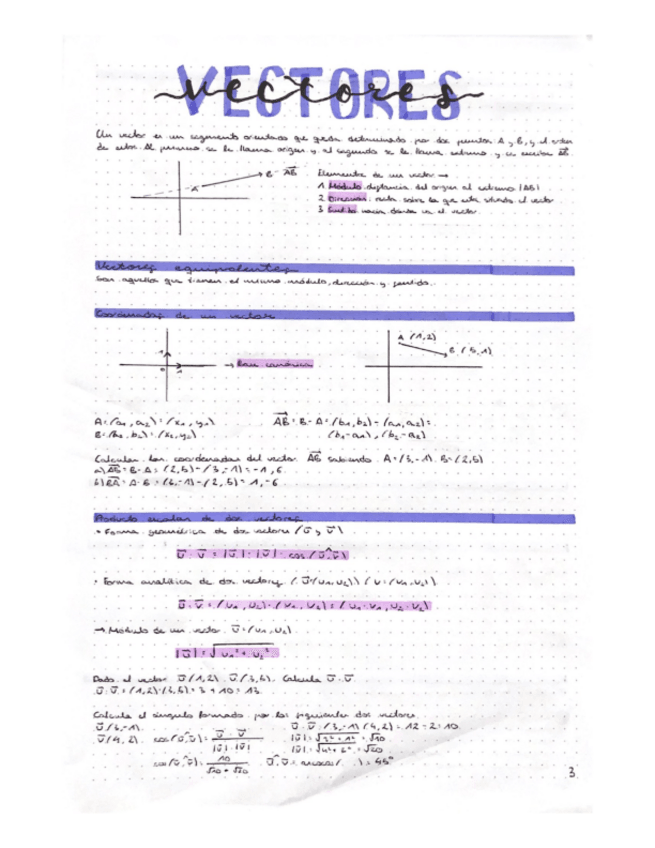 VECTORES
vectores
Un vector es un segmento orientado que queda determinado por dos puntos A y B, y el orden
de estos. Al primero se le llama origen y al segundo se le llama extremo y se escribe AB.
A B AB
Elementos de un vector →
1. Módulo: distancia del origen al extremo |AB|
2. Dirección: recta sobre la que está situado el vector
3. Sentido: hacia donde va el vector.
Vectores equivalentes
Son aquellos que tienen el mismo módulo, dirección y sentido.
Coordenadas de un vector
1 0 1 → Base canónica
A (1,2)
B (5,1)
A=(a₁, a₂)=(x₁, y₁)
B=(b₁, b₂)=(x₂, y₂)
AB = B - A = (b₁, b₂) - (a₁, a₂) =
(b₁-a₁), (b₂-a₂)
Calcular las coordenadas del vector AB sabiendo A=(3,-1) B=(2,5)
a) AB = B-A = (2,5) - (3,-1) = -1, 6.
b) BA = A-B = (3,-1) - (2,5) = 1, -6.
Producto escalar de dos vectores
• Forma geométrica de dos vectores (u y v)
u · v = |u| · |v| · cos (u,v)
• Forma analítica de dos vectores (u=(u₁,u₂)) (v=(v₁,v₂))
u · v = (u₁, u₂) · (v₁, v₂) = (u₁·v₁, u₂·v₂)
→ Módulo de un vector u=(u₁,u₂)
|u| = √u₁² + u₂²
Dado el vector u(1,2) v(3,5). Calcula u·v
u·v = (1,2)·(3,5) = 3 + 10 = 13.
Calcula el ángulo formado por los siguientes dos vectores
u(3,-1).
v(4,2).
cos(u,v) = u·v / |u|·|v|
u·v = (3,-1)(4,2) = 12-2 = 10.
|u| = √3²+1² = √10
|v| = √4²+2² = √20
cos(u,v) = 10 / √10 · √20
u,v = arccos( ) = 45°
3